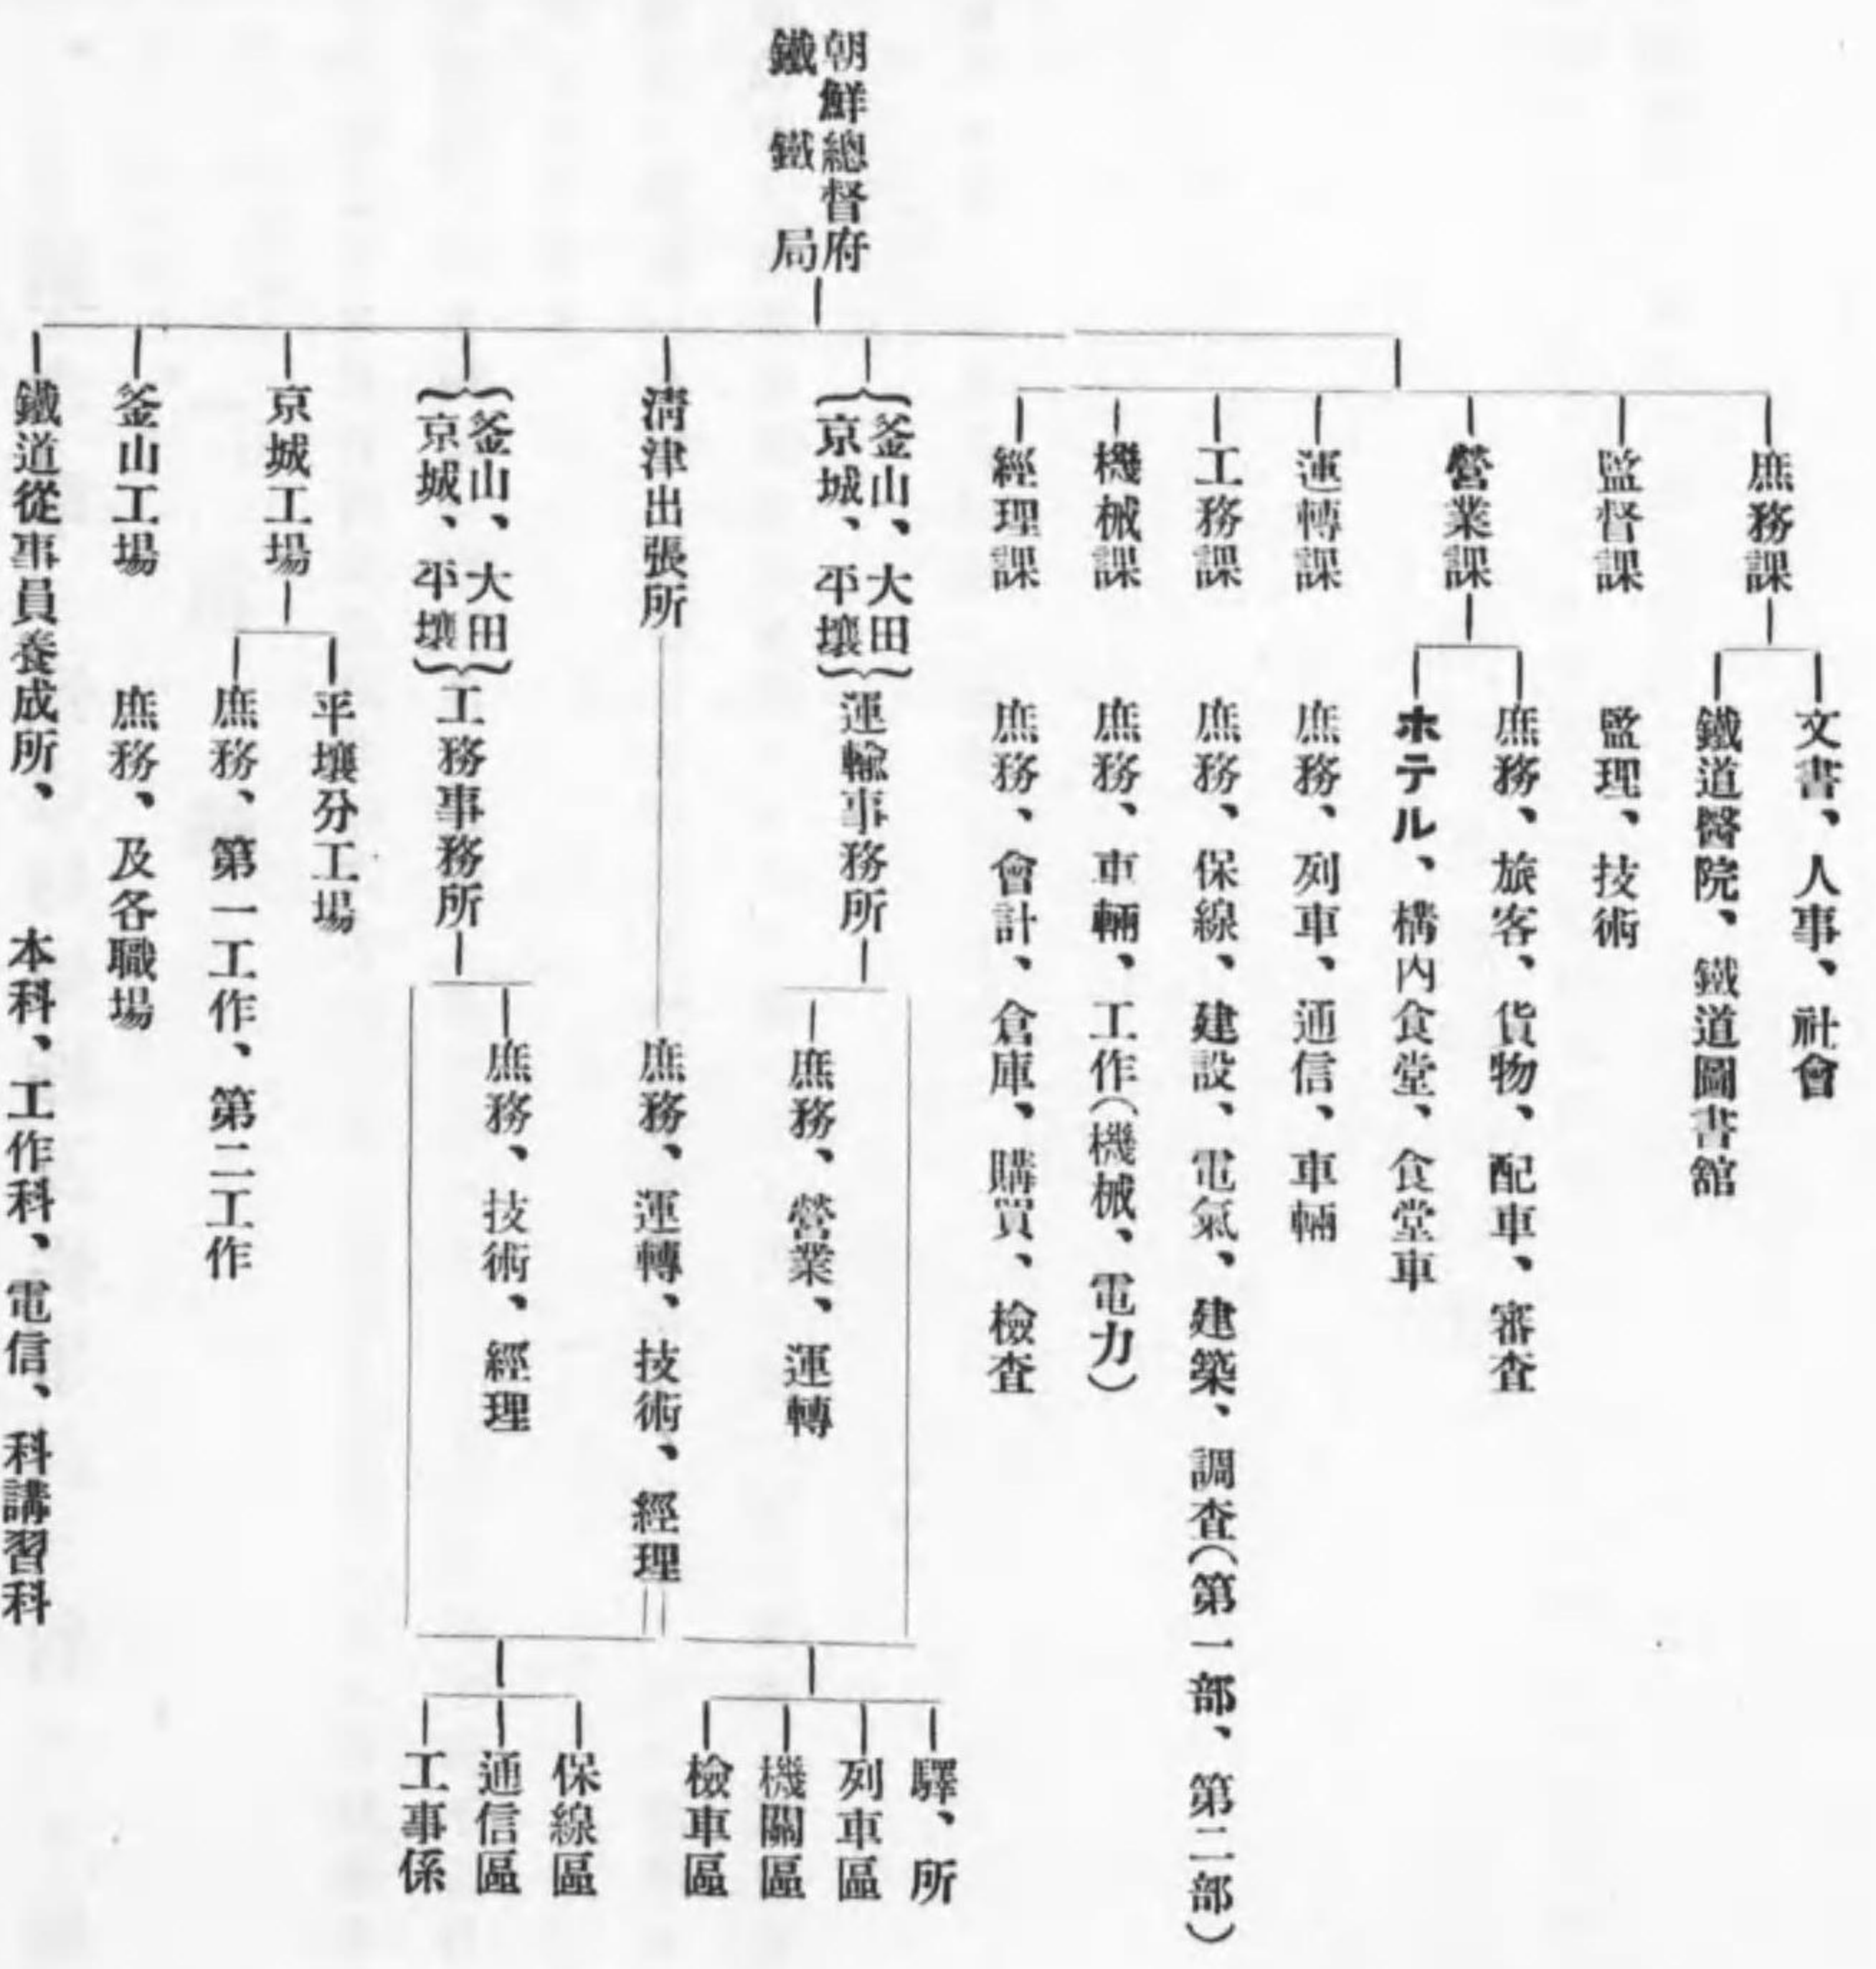 朝鮮總督府
鐵鐵局
庶務課
文書、人事、社會
鐵道醫院、鐵道圖書舘
監督課
監理、技術
營業課
庶務、旅客、貨物、配車、審査
ホテル、構內食堂、食堂車
運轉課
庶務、列車、通信、車輛
工務課
庶務、保線、建設、電氣、建築、調査(第一部、第二部)
機械課
庶務、車輛、工作(機械、電力)
經理課
庶務、會計、倉庫、購買、檢査
釜山、大田
京城、平壤
運輸事務所
庶務、營業、運轉
淸津出張所
庶務、運轉、技術、經理
釜山、大田
京城、平壤
工務事務所
庶務、技術、經理
驛、所
列車區
機關區
檢車區
保線區
通信區
工事係
京城工場
平壤分工場
庶務、第一工作、第二工作
釜山工場
庶務、及各職場
鐵道從事員養成所、
本科、工作科、電信、科講習科